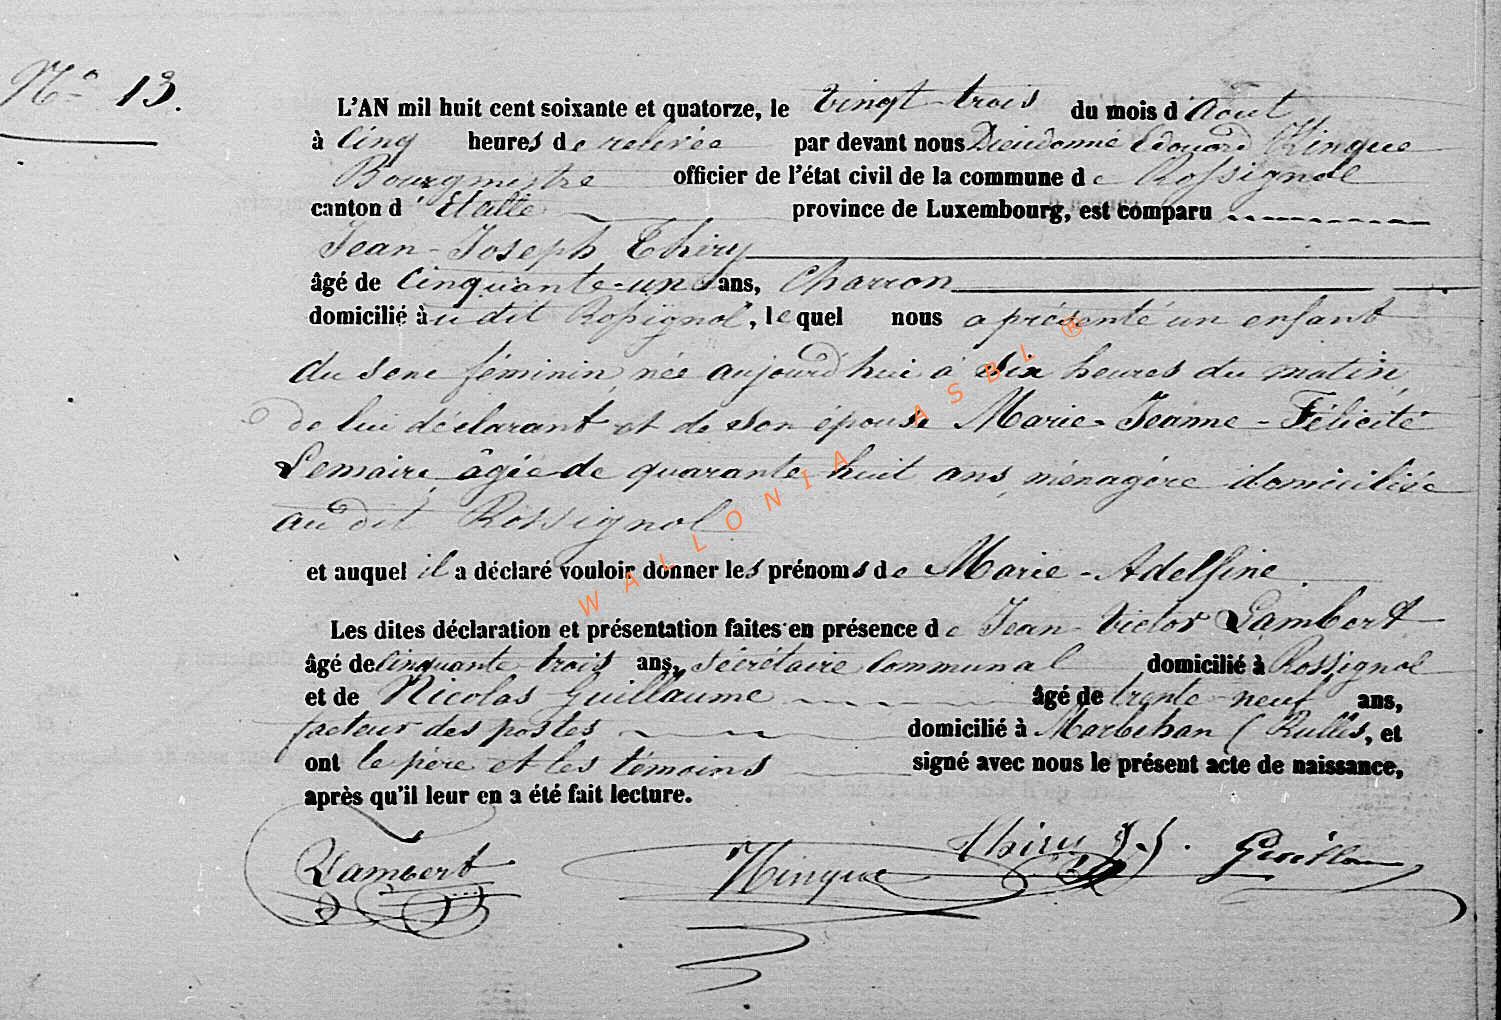 N° 13.
L'AN mil huit cent soixante et quatorze, le vingt-trois du mois d'Aout
à cinq heures de relevée par devant nous Dieudonné Edouard Hinque
Bourgmestre officier de l'état civil de la commune de Rossignol
canton d'Etalle province de Luxembourg, est comparu
Jean-Joseph Thiry
âgé de cinquante-un ans, Charron
domicilié àu dit Rossignol, lequel nous a présenté un enfant
du sexe féminin, née aujourd'hui à six heures du matin,
de lui déclarant et de son épouse Marie-Jeanne-Félicité
Lemaire, âgée de quarante huit ans, ménagère domiciliée
au dit Rossignol
et auquel il a déclaré vouloir donner les prénoms de Marie-Adelfine.
Les dites déclaration et présentation faites en présence de Jean Victor Lambert
âgé de cinquante trois ans, sécrétaire Communal domicilié à Rossignol
et de Nicolas Guillaume âgé de trente-neuf ans,
facteur des postes domicilié à Marbehan (Rulles, et
ont le père et les témoins signé avec nous le présent acte de naissance,
après qu'il leur en a été fait lecture.
Lambert Hinque Thiry J.J. Guillau
WALLONIA ASBL ®